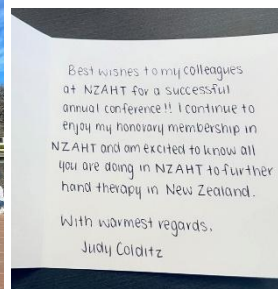 Best wishes to my colleagues
at NZAHT for a successful
annual conference!! I continue to
enjoy my honorary membership in
NZAHT and am excited to know all
you are doing in NZAHT to further
hand therapy in New Zealand.
With warmest regards,
Judy Colditz